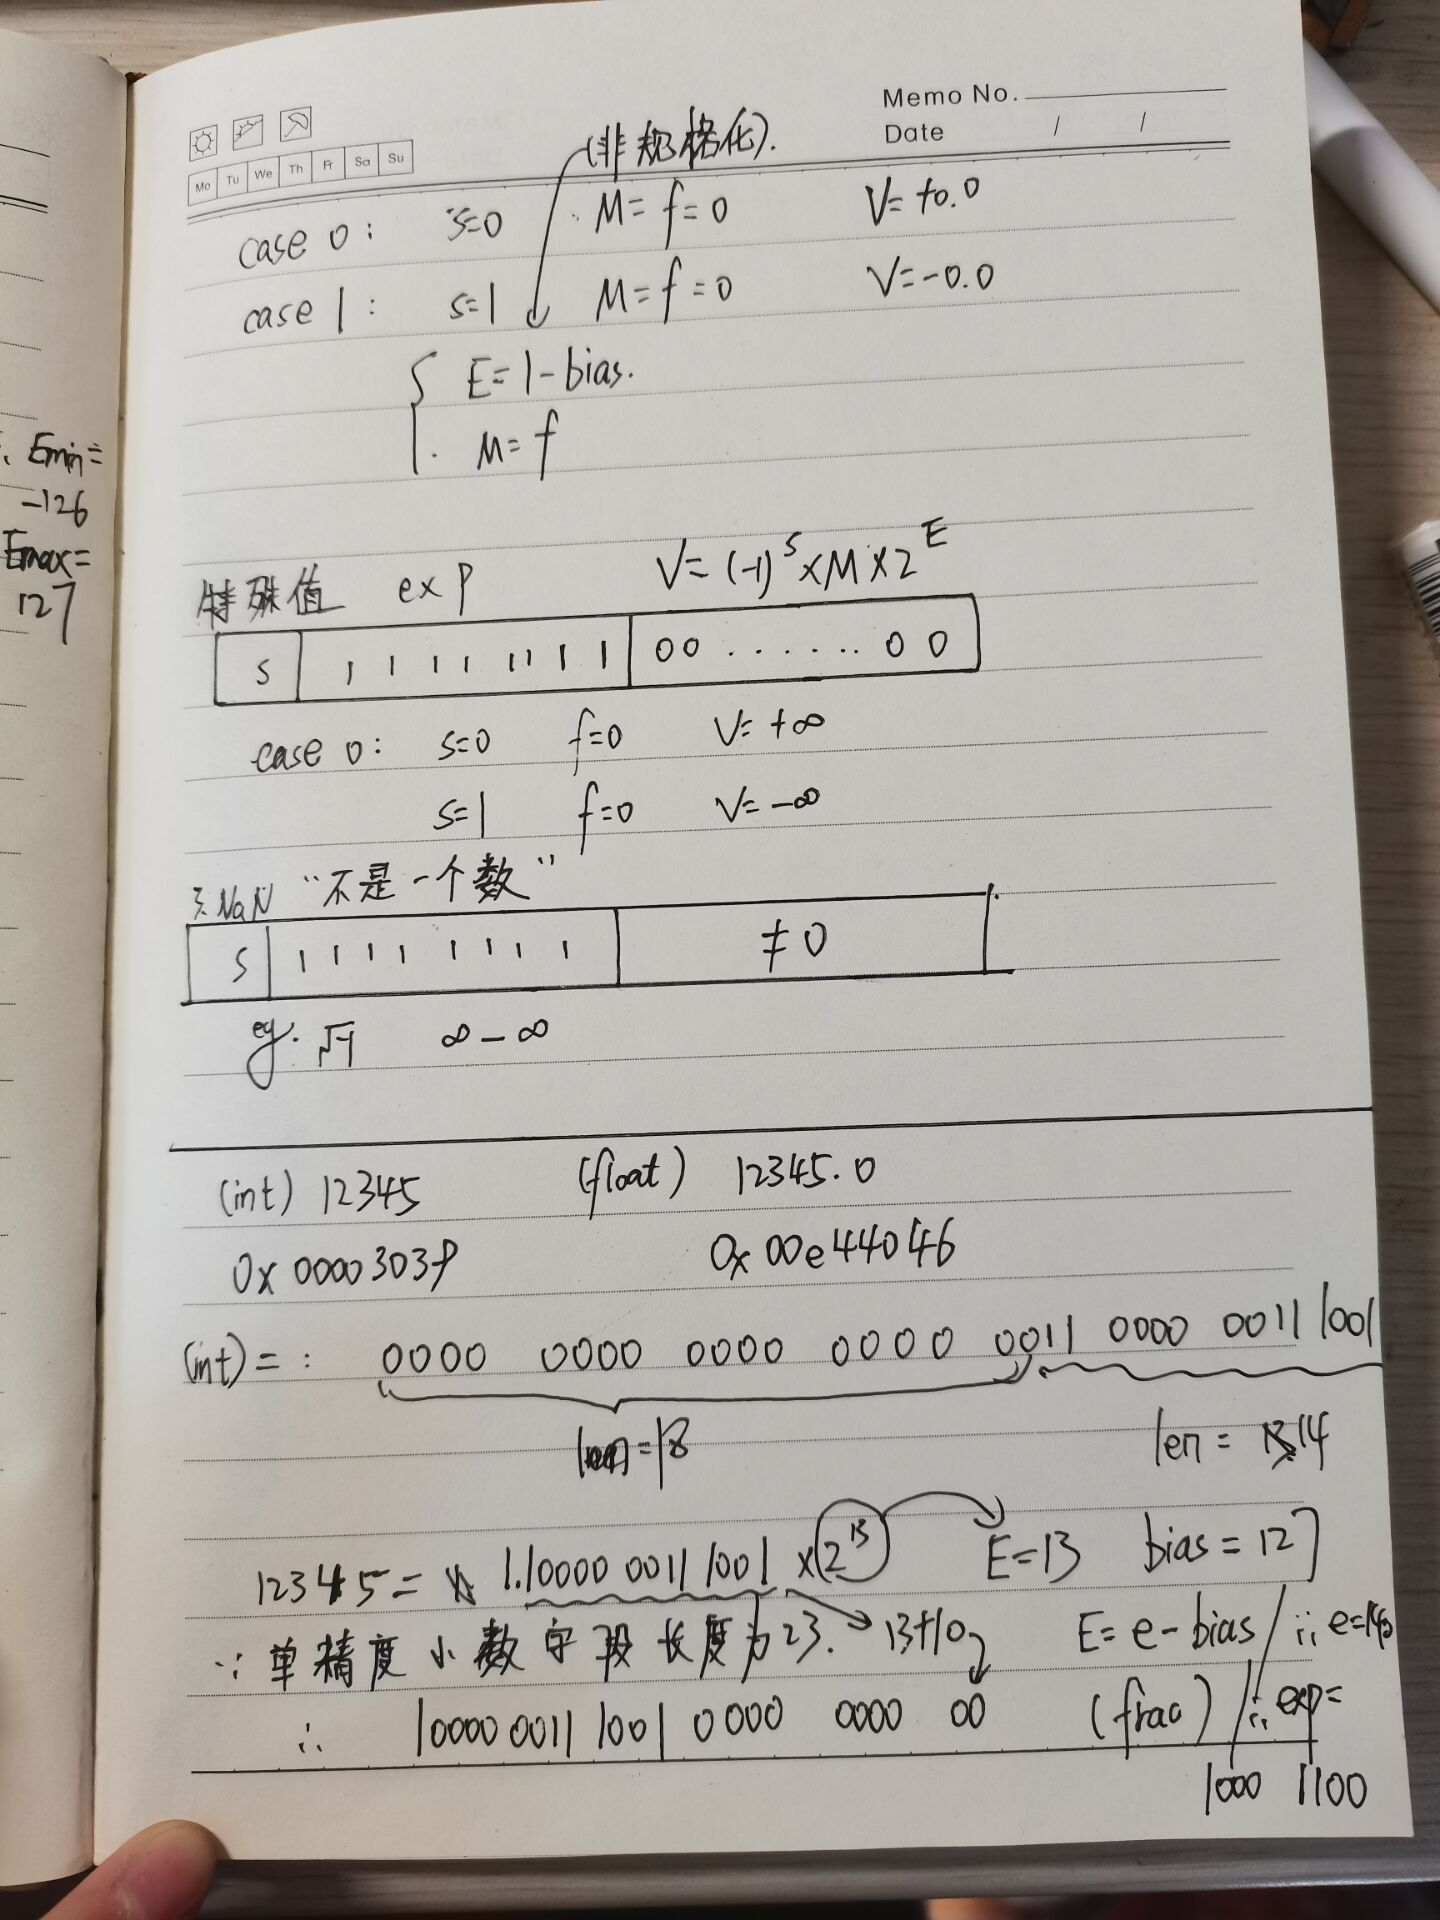 Memo No.
Date / /
Mo Tu We Th Fr Sa Su
(非规格化).
case 0: s=0 M=f=0 V=+0.0
case 1: s=1 M=f=0 V=-0.0
E=1-bias.
M=f
∴ Emin=
-126
Emax=
127
特殊值 exp V=(-1)^s×M×2^E
s 1 1 1 1 1 1 1 1 00 ...... 0 0
case 0: s=0 f=0 V=+∞
s=1 f=0 V=-∞
3. NaN “不是一个数”
s 1 1 1 1 1 1 1 1 ≠0
eg. √-1 ∞-∞
(int) 12345 (float) 12345.0
0x00003039 0x00e44046
(int)=: 0000 0000 0000 0000 0011 0000 0011 1001
len=18 len=14
12345= 1.10000 0011 1001 ×2^13 E=13 bias=127
∵单精度小数字段长度为23. 13+10 E=e-bias ∴e=140
∴ 10000 0011 1001 0000 0000 00 (frac) ∴exp=
1000 1100